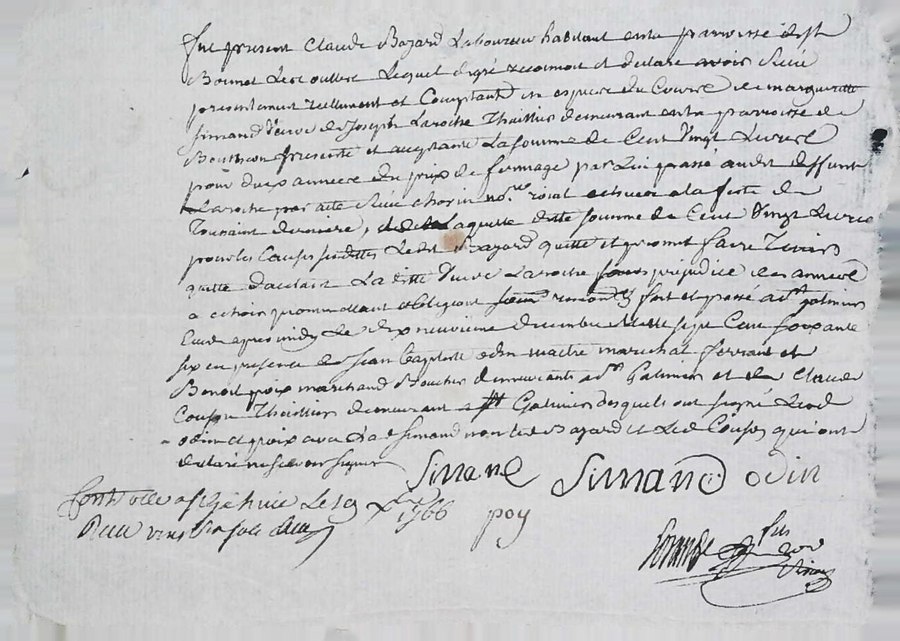 fut present Claude Bazard Laboureur habitant en la parroisse de St
Bonnet Les oulles Lequel de gré reconnoit et declare avoir Receu
presentement reellement et Comptant en especes du Cours de marguerite
Simand veuve de Joseph Laroche Thoillier demeurant en la parroisse de
Bouthéon presente et aceptante La somme de Cent Vingt Livres
pour deux années du prix de fermage par Lui passé audit deffunt
Laroche par acte Receu notre royal echues a la feste de
Toussaint derniere, de Laquelle ditte somme de Cent Vingt Livres
pour les Causes susdittes Ledit Bazard quitte et promet faire Tenir
quitte d'autant La ditte veuve Laroche sans prejudice des années
a echoir promettant obligeant renonceant fait et passé a St galmier
Etude apres midy Le dix neuvieme decembre mille sept Cent soixante
six en presence de Jean Baptiste odin maitre marechal ferrant et
Benoit poix marchand Boucher demeurants a St Galmier et de Claude
Couson Thoillier demeurant a St Galmier Lesquels ont signé Led
odin et poix avec Lad Simand non Led Bazard et Led Couson qui ont
declaré ne scavoir signer
Simand Simand odin
Controllé a St Galmier Le 29 Xbre 1766 poy
Receu vingt six sols